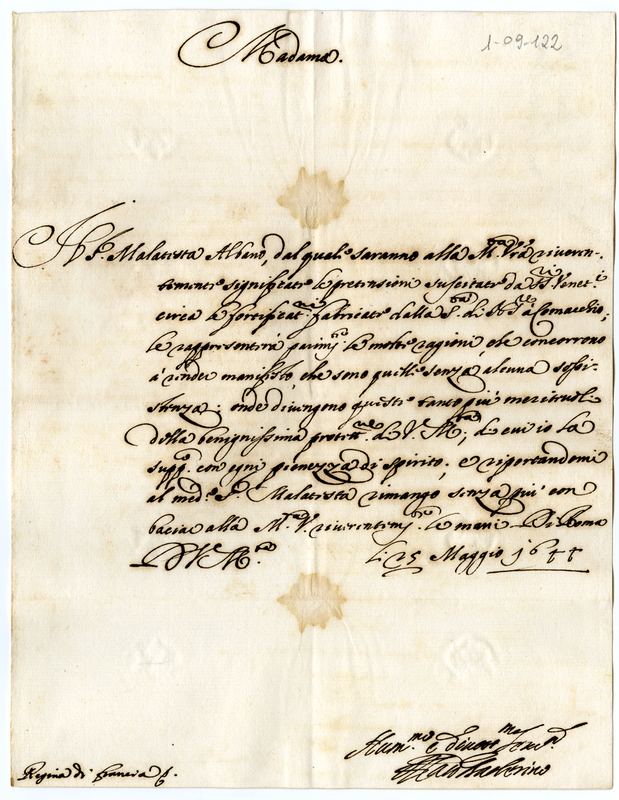 1-09-122
Madama.
Il S.r Malatesta Albano, dal quale saranno alla M.tà V.ra riveren-
temente significate le pretensioni suscitate da SS.ri Venet.i
circa le fortificat.ni fabricate dalla S.tà di N. S.re à Comacchio,
le rappresenterà parim.te le molte ragioni, che concorrono
à render manifesto, che sono quelle senza alcuna sussi-
stenza; onde divengono queste tanto più meritevoli
della benignissima protett.ne di V. M.tà, di cui io la
supp.co con ogni pienezza di spirito; e riportandomi
al med.o S.r Malatesta rimango senza più con
baciar alla M.tà V. riverentem.te le mani. Di Roma
D V M.tà
li 25 Maggio 1644
Hum.mo e devot.mo ser.re
Regina di Francia